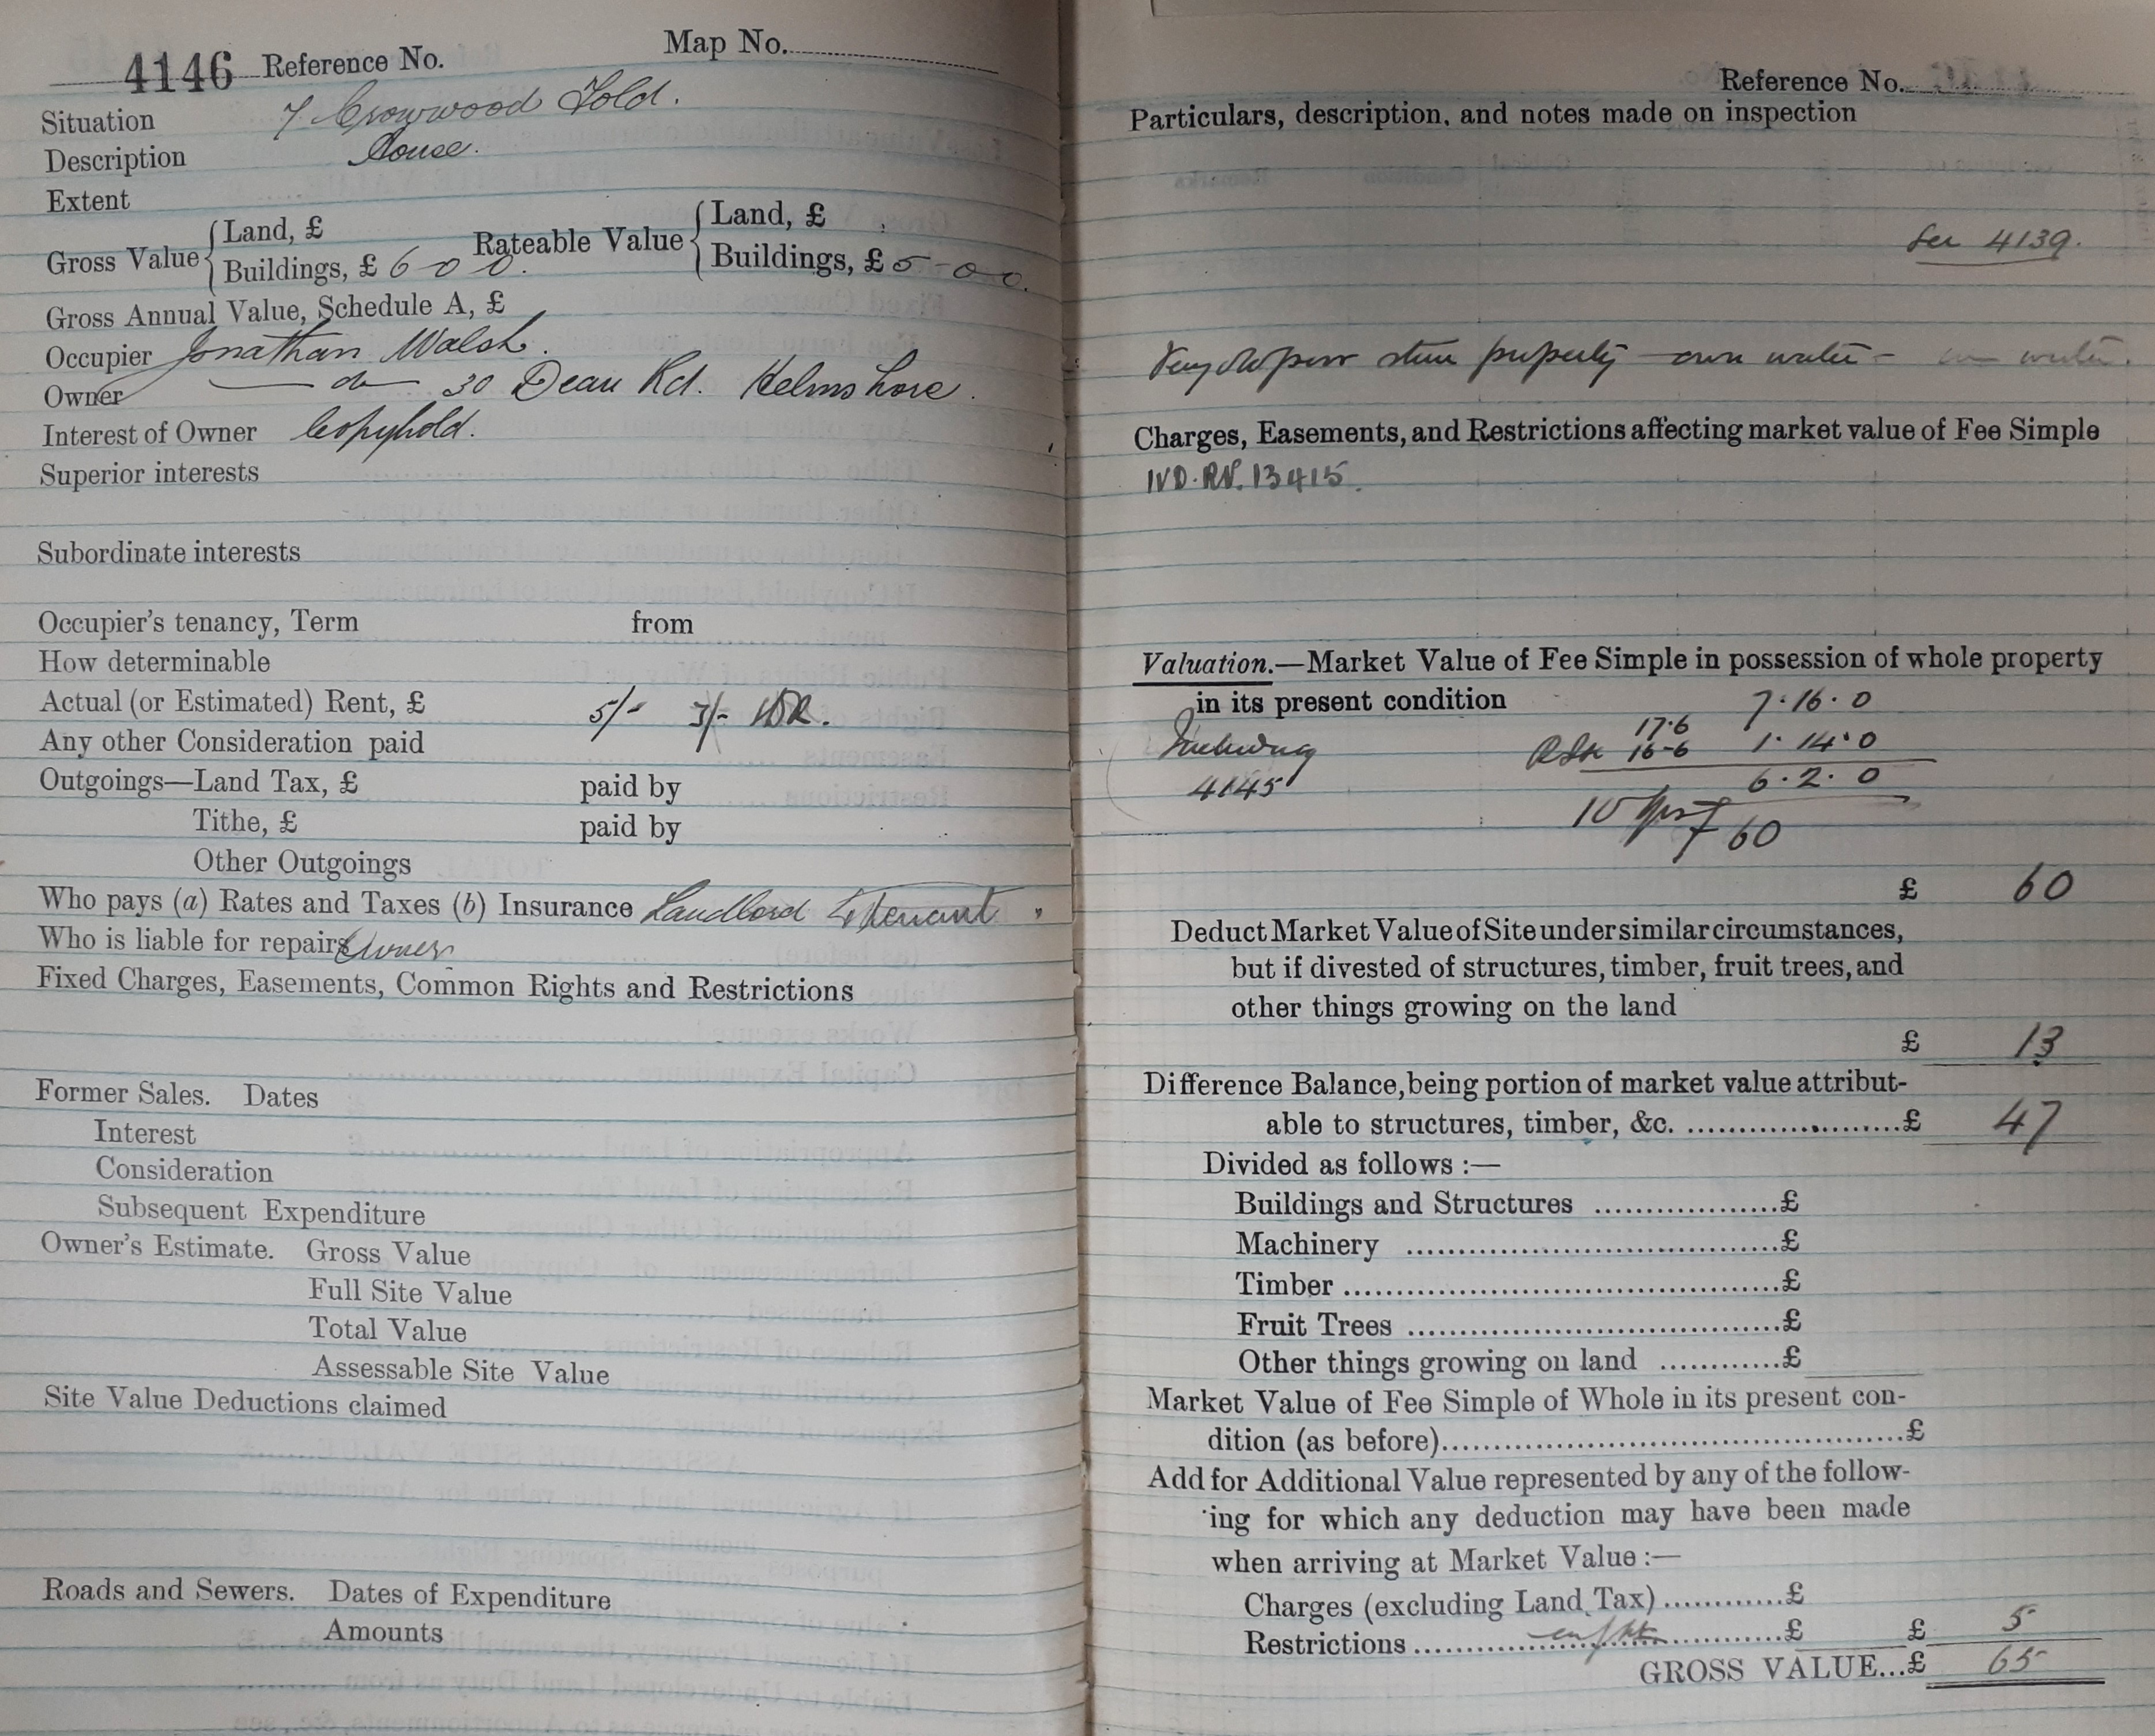 4146 Reference No. Map No.
Situation 7 Crowwood Fold.
Description House.
Extent
Gross Value { Land, £
Buildings, £ 6 - 0 - 0. Rateable Value { Land, £
Buildings, £ 5 - 0 - 0.
Gross Annual Value, Schedule A, £
Occupier Jonathan Walsh.
Owner — do — 30 Dean Rd. Helmshore.
Interest of Owner Copyhold.
Superior interests
Subordinate interests
Occupier's tenancy, Term from
How determinable
Actual (or Estimated) Rent, £ 5/- 3/-
Any other Consideration paid
Outgoings—Land Tax, £ paid by
Tithe, £ paid by
Other Outgoings
Who pays (a) Rates and Taxes (b) Insurance Landlord & Tenant
Who is liable for repairs Owner
Fixed Charges, Easements, Common Rights and Restrictions
Former Sales. Dates
Interest
Consideration
Subsequent Expenditure
Owner's Estimate. Gross Value
Full Site Value
Total Value
Assessable Site Value
Site Value Deductions claimed
Roads and Sewers. Dates of Expenditure
Amounts
Reference No.
Particulars, description, and notes made on inspection
See 4139.
Very old poor stone property — own water -
Charges, Easements, and Restrictions affecting market value of Fee Simple
IVD. RN. 13415.
Valuation.—Market Value of Fee Simple in possession of whole property
in its present condition 7 . 16 . 0
Including 17.6
16-6 1 . 14 . 0
4145 6 . 2 . 0
10 60
£ 60
Deduct Market Value of Site under similar circumstances,
but if divested of structures, timber, fruit trees, and
other things growing on the land
£ 13
Difference Balance, being portion of market value attribut-
able to structures, timber, &c. ....................£ 47
Divided as follows :—
Buildings and Structures ..................£
Machinery ....................................£
Timber ..........................................£
Fruit Trees ....................................£
Other things growing on land ............£
Market Value of Fee Simple of Whole in its present con-
dition (as before).............................................£
Add for Additional Value represented by any of the follow-
ing for which any deduction may have been made
when arriving at Market Value :—
Charges (excluding Land Tax)............£
Restrictions ....................................£ £ 5
GROSS VALUE...£ 65